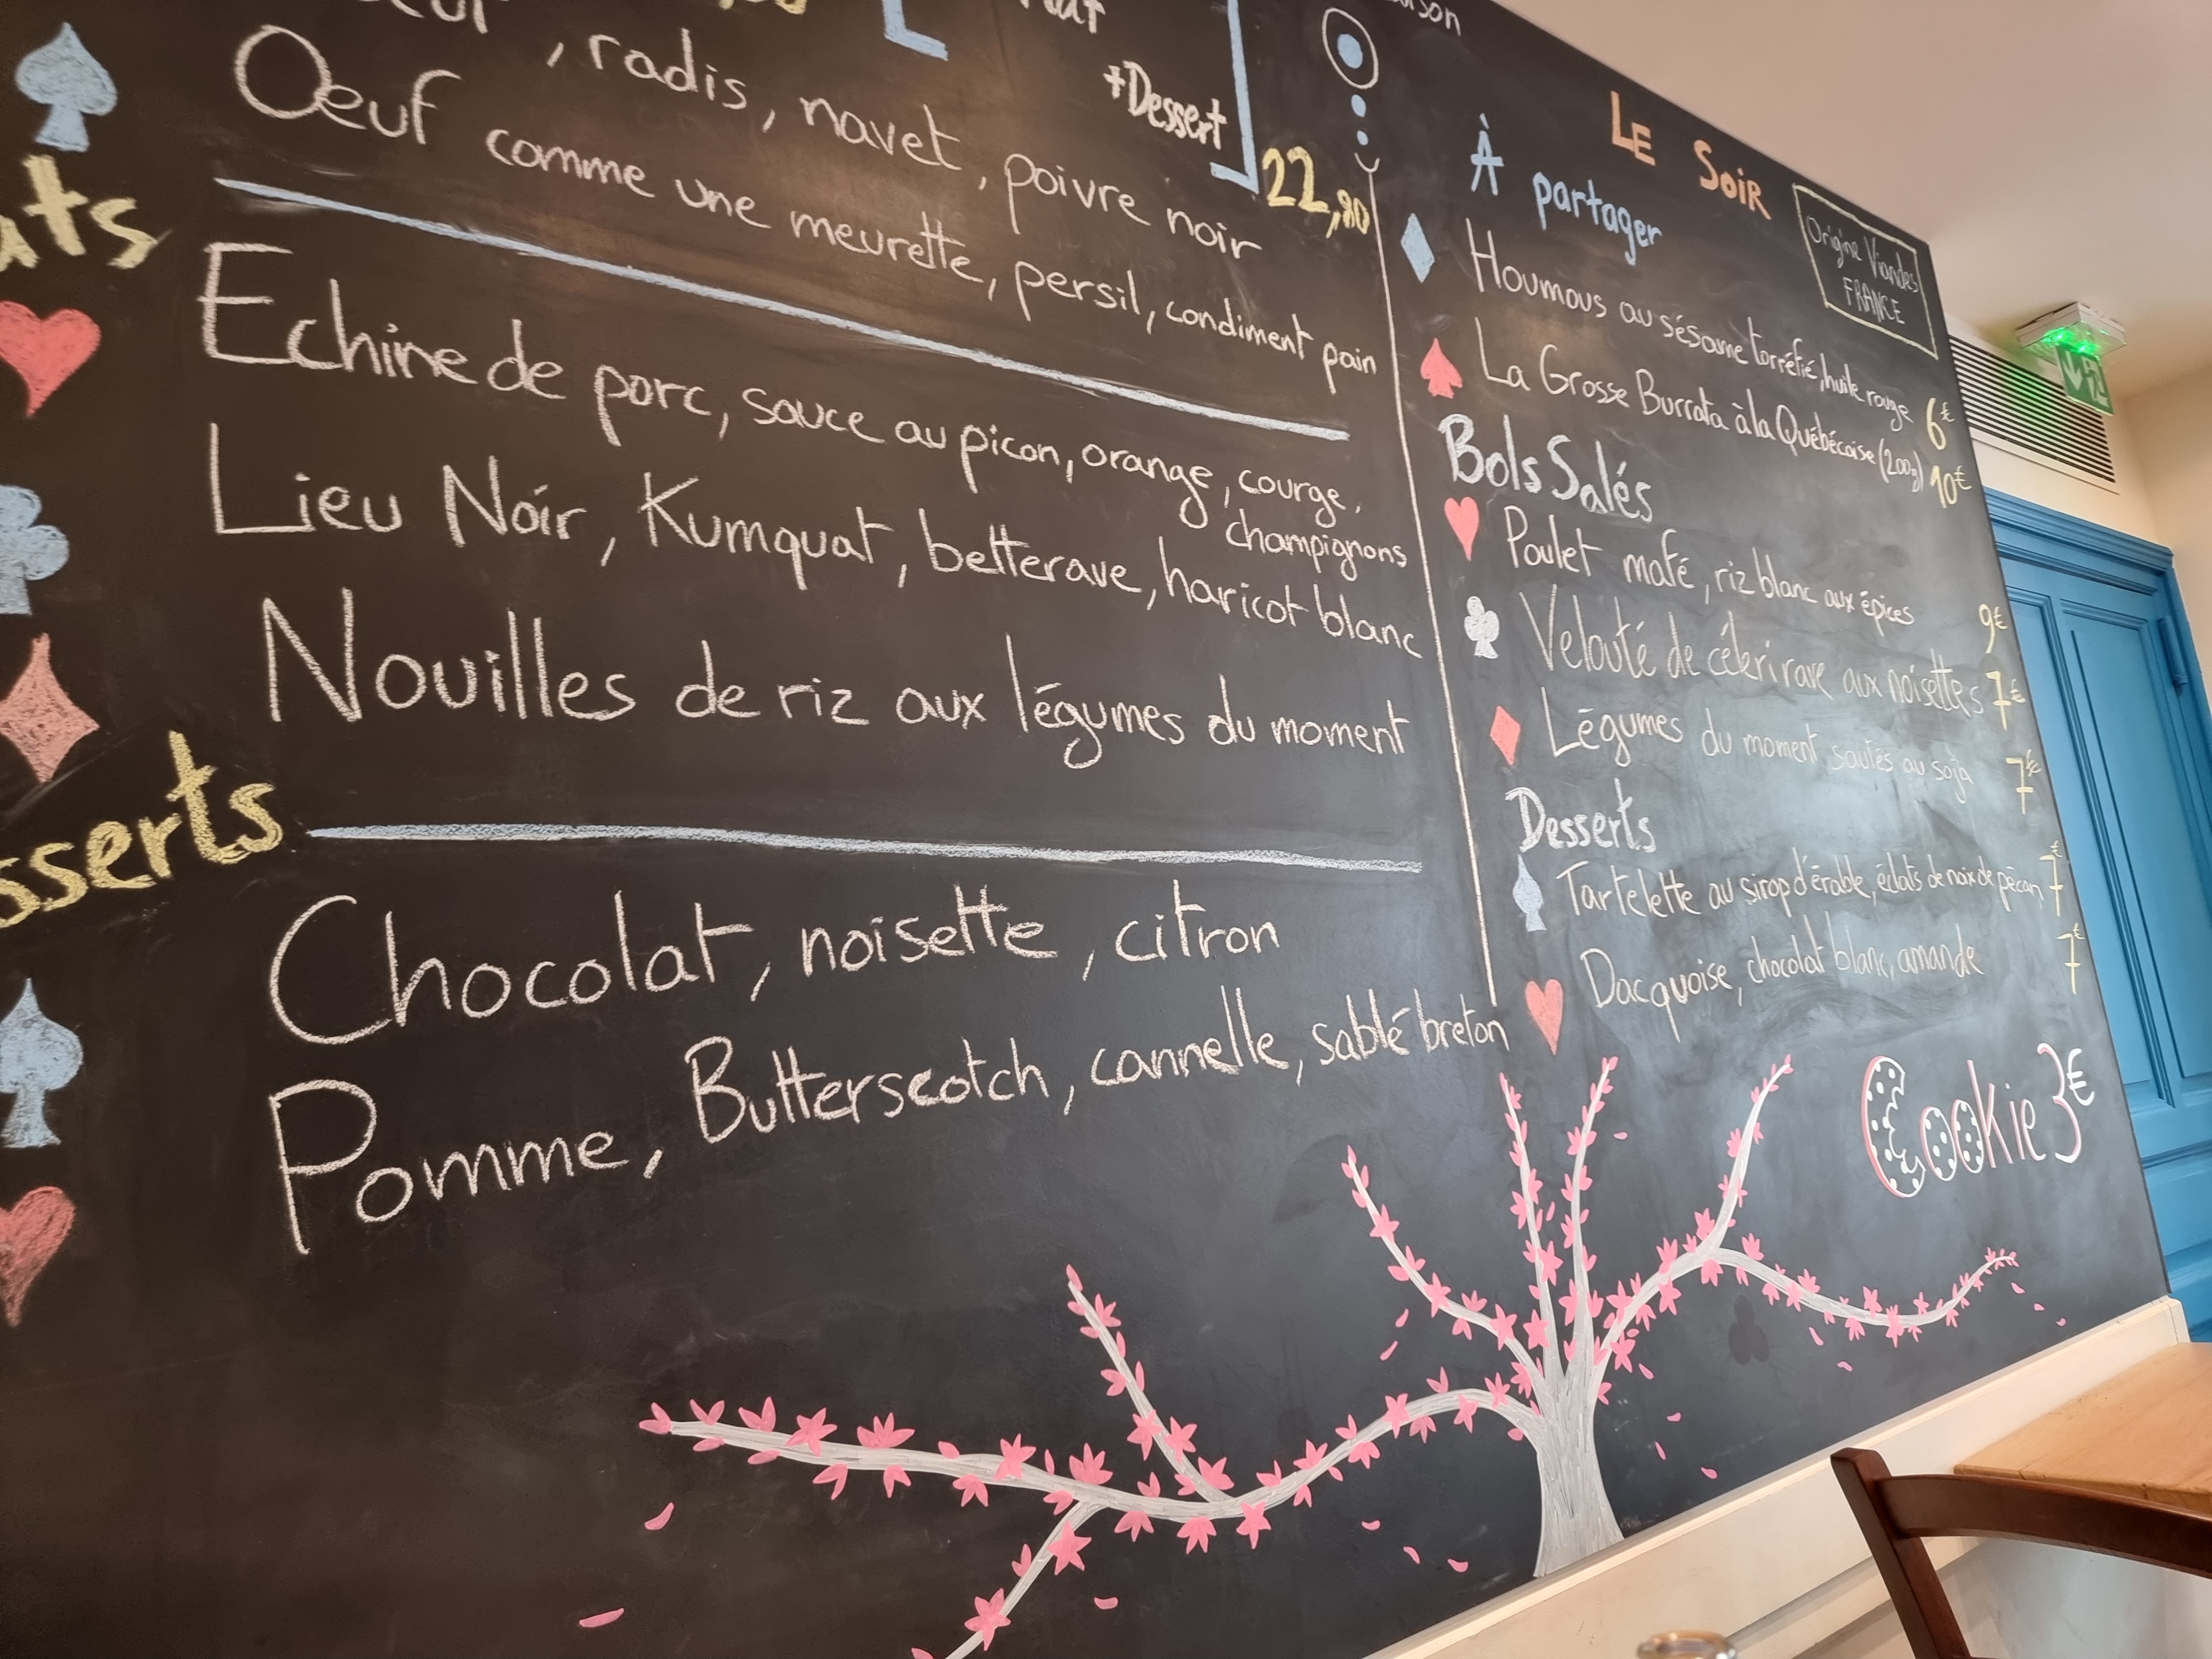 , radis, navet, poivre noir
Oeuf comme une meurette, persil, condiment pain
Echine de porc, sauce au picon, orange, courge,
champignons
Lieu Noir, Kumquat, betterave, haricot blanc
Nouilles de riz aux légumes du moment
sserts
Chocolat, noisette, citron
Pomme, Butterscotch, cannelle, sablé breton
+Dessert
22,80
LE SOIR
Origine Viandes
FRANCE
À partager
Houmous au sésame torréfié, huile rouge 6€
La Grosse Burrata à la Québécoise (200g) 10€
Bols Salés
Poulet mafé, riz blanc aux épices 9€
Velouté de céleri rave aux noisettes 7€
Légumes du moment sautés au soja 7€
Desserts
Tartelette au sirop d'érable, éclats de noix de pécan, 7€
Dacquoise, chocolat blanc, amande 7€
Cookie 3€